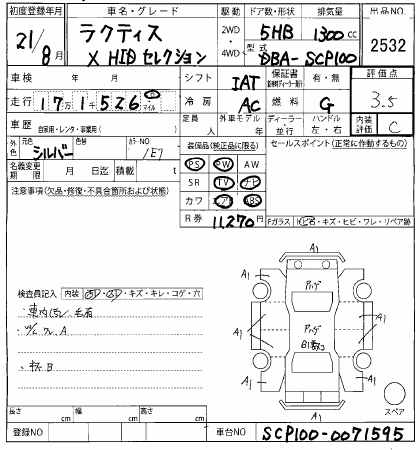 初度登録年月 車名・グレード 駆動 ドア数・形状 排気量 出品NO.
21/8月 ラクティス X HIDセレクション 2WD 4WD 5HB 1300 cc 2532
型式 DBA- SCP100
車検 年 月 シフト IAT 保証書 有・無 評価点
走行 17万1千526 km マイル 冷房 AC 燃料 G 3.5
車歴 自家用・レンタ・事業用( ) 定員 人 外車モデル 年 ディーラー・並行 ハンドル 左・右 内装評価 C
外色 元色 シルバー 色替 カラーNO /E7 装備品(純正品に限る) セールスポイント(正常に作動するもの)
名義変更期限 月 日迄 積載 t PS PW AW
注意事項(欠品・修復・不具合箇所および状態) SR TV ナビ
カワ エアB ABS
R券 11,270円 Fガラス 飛石・キズ・ヒビ・ワレ・リペア跡
A1
A1 A1
検査員記入 内装 キズ・キレ・コゲ・穴
A1 A1
A
キズ B
A1 A1
A1
スペア
長さ cm 幅 cm 高さ cm
登録NO 車台NO SCP100-0071595